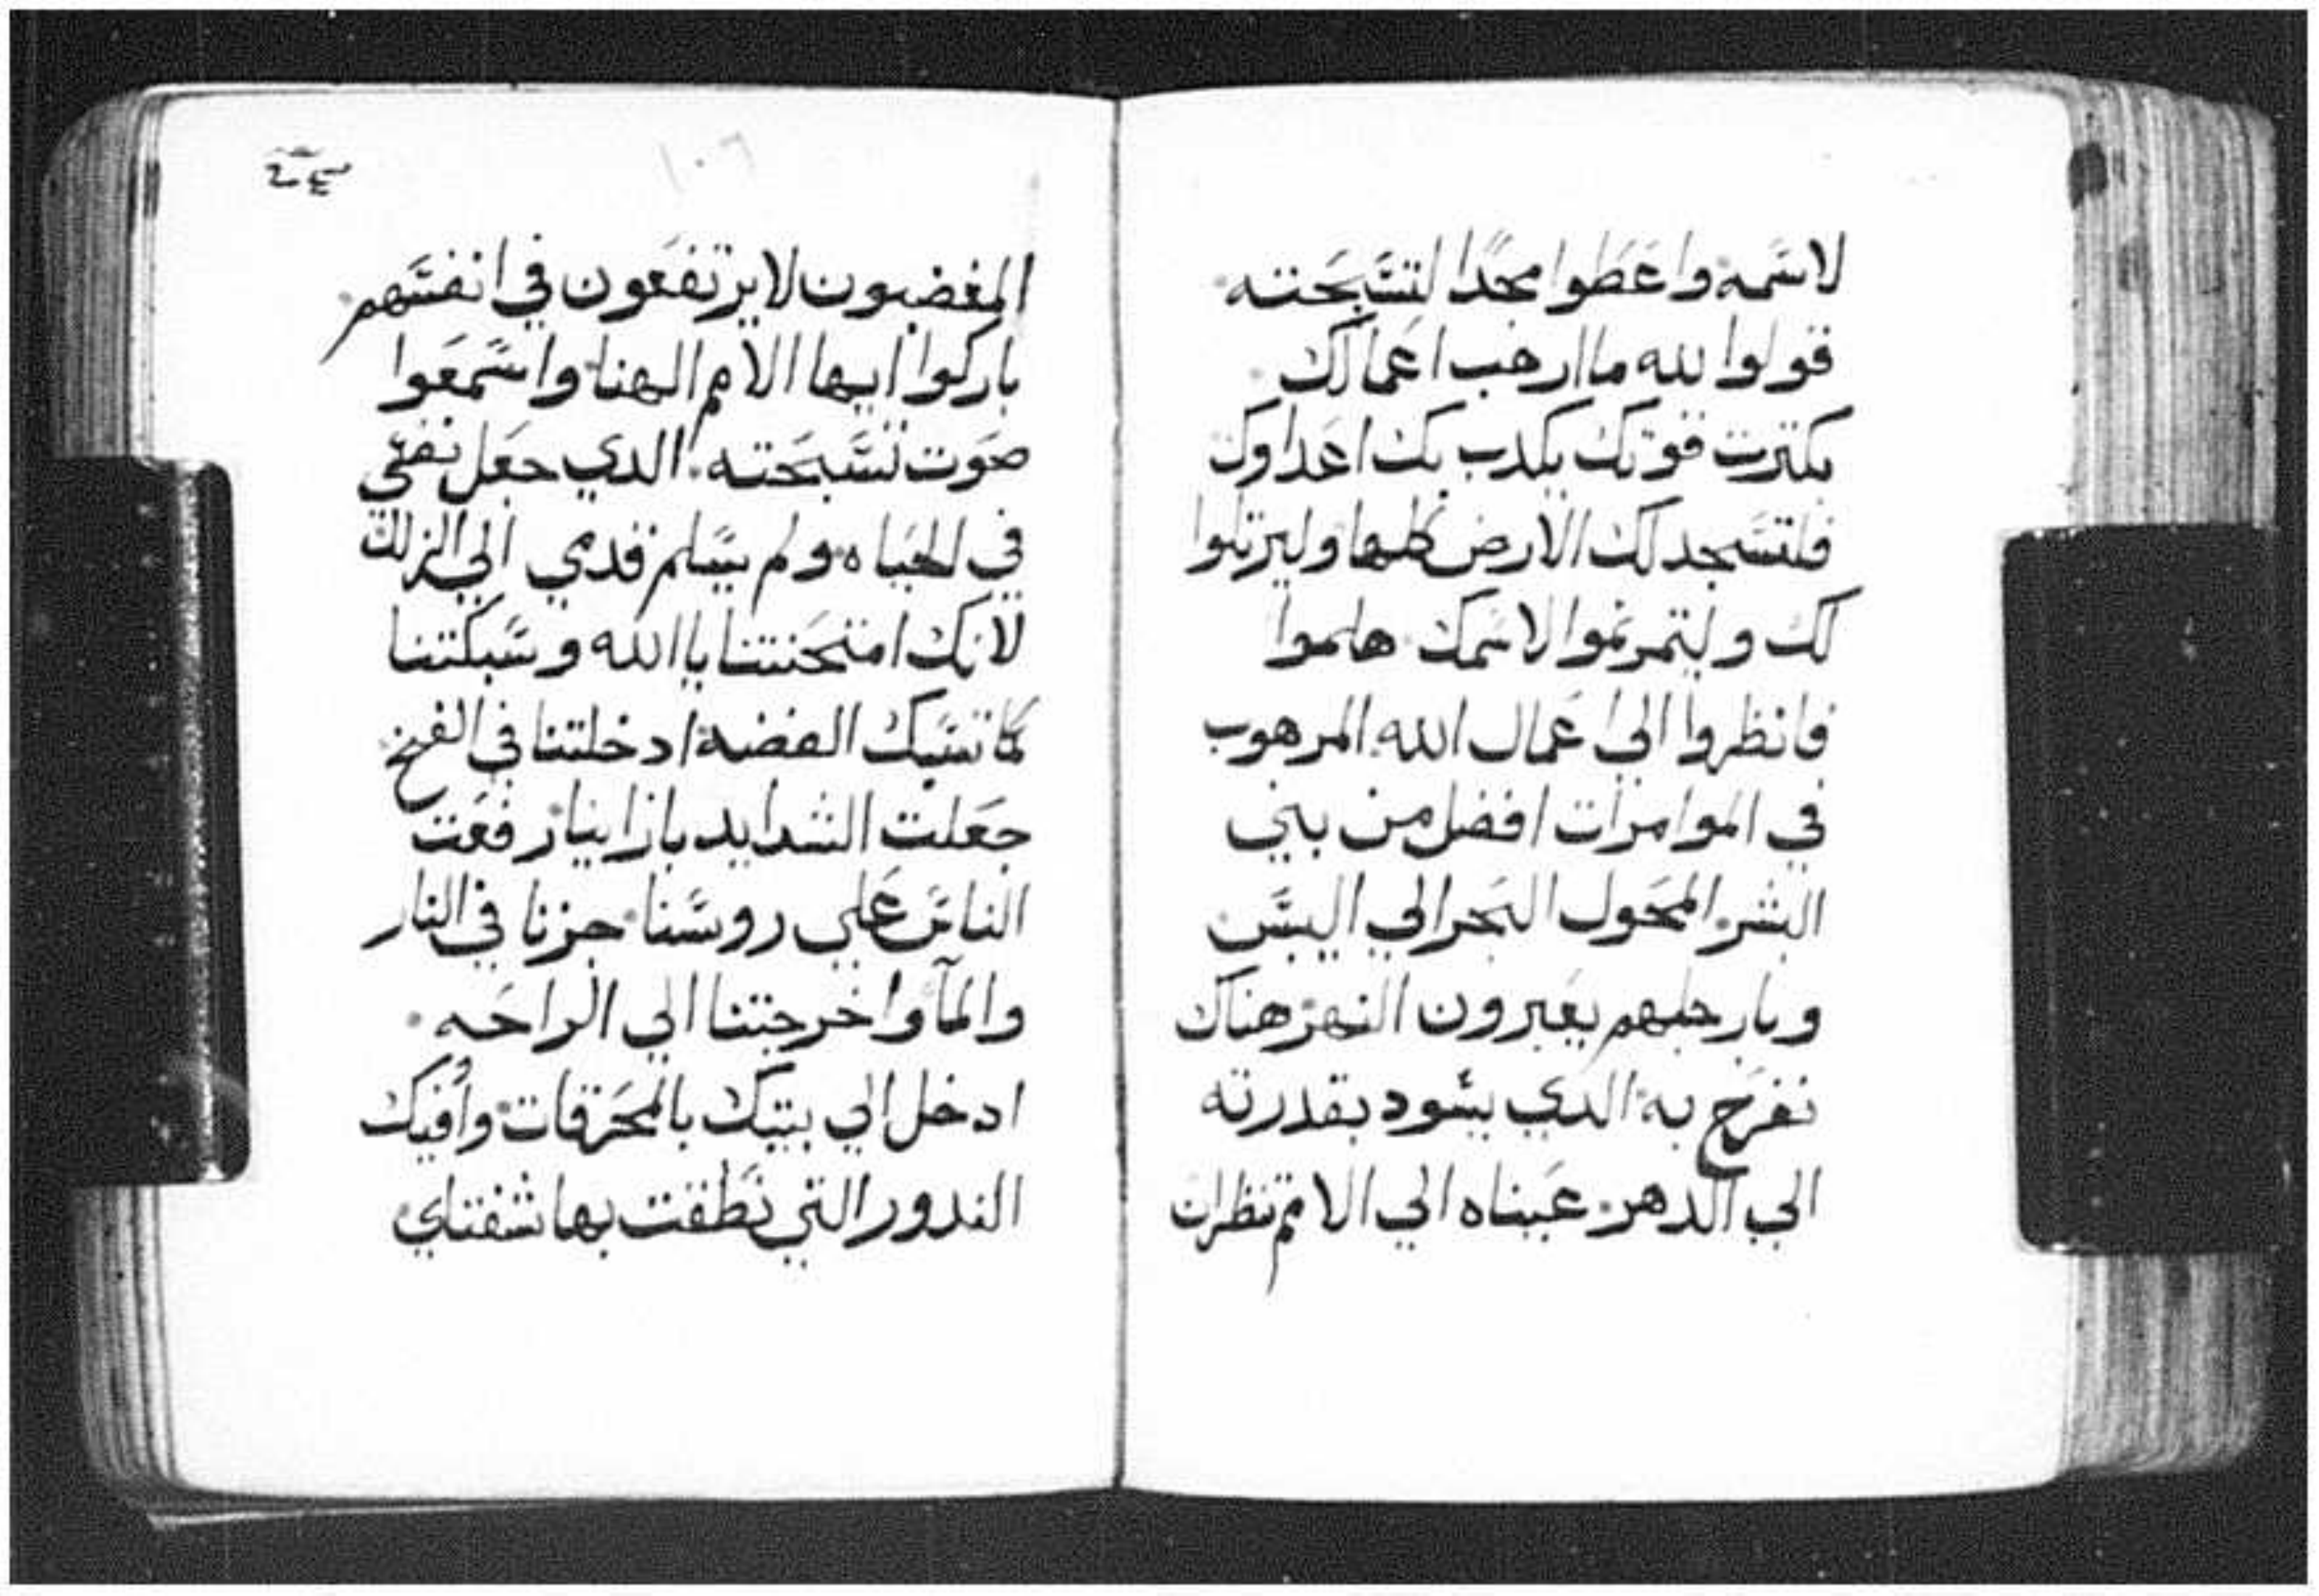 لاسمه واعطوا مجدا لتسبحته
قولوا لله ما ارهب اعمالك
بكترت قوتك يكدب بك اعداوك
فلتسجد لك الارض كلها وليرتلوا
لك وليتمرنموا لاسمك هلموا
فانظروا الي اعمال الله المرهوب
في الموامرات افضل من بني
البشر المحول البحر الي اليبس
وبارجلهم يعبرون النهر هناك
نفرح به الدي يسود بقدرته
الي الدهر عيناه الي الامم تنظران
١٠٦
المغضبون لا يرتفعون في انفسهم
باركوا ايها الامم الهنا واسمعوا
صوت تسبحته الدي جعل نفسي
في الحياه ولم يسلم قدمي الي الزلل
لانك امتحنتنا يا الله وسبكتنا
كما تسبك الفضة ادخلتنا في الفخ
جعلت الشدايد بازاينا رفعت
الناس علي روسنا جزنا في النار
والمآ واخرجتنا الي الراحه
ادخل الي بيتك بالمحرقات واُفيك
الندور التي نطقت بها شفتاي